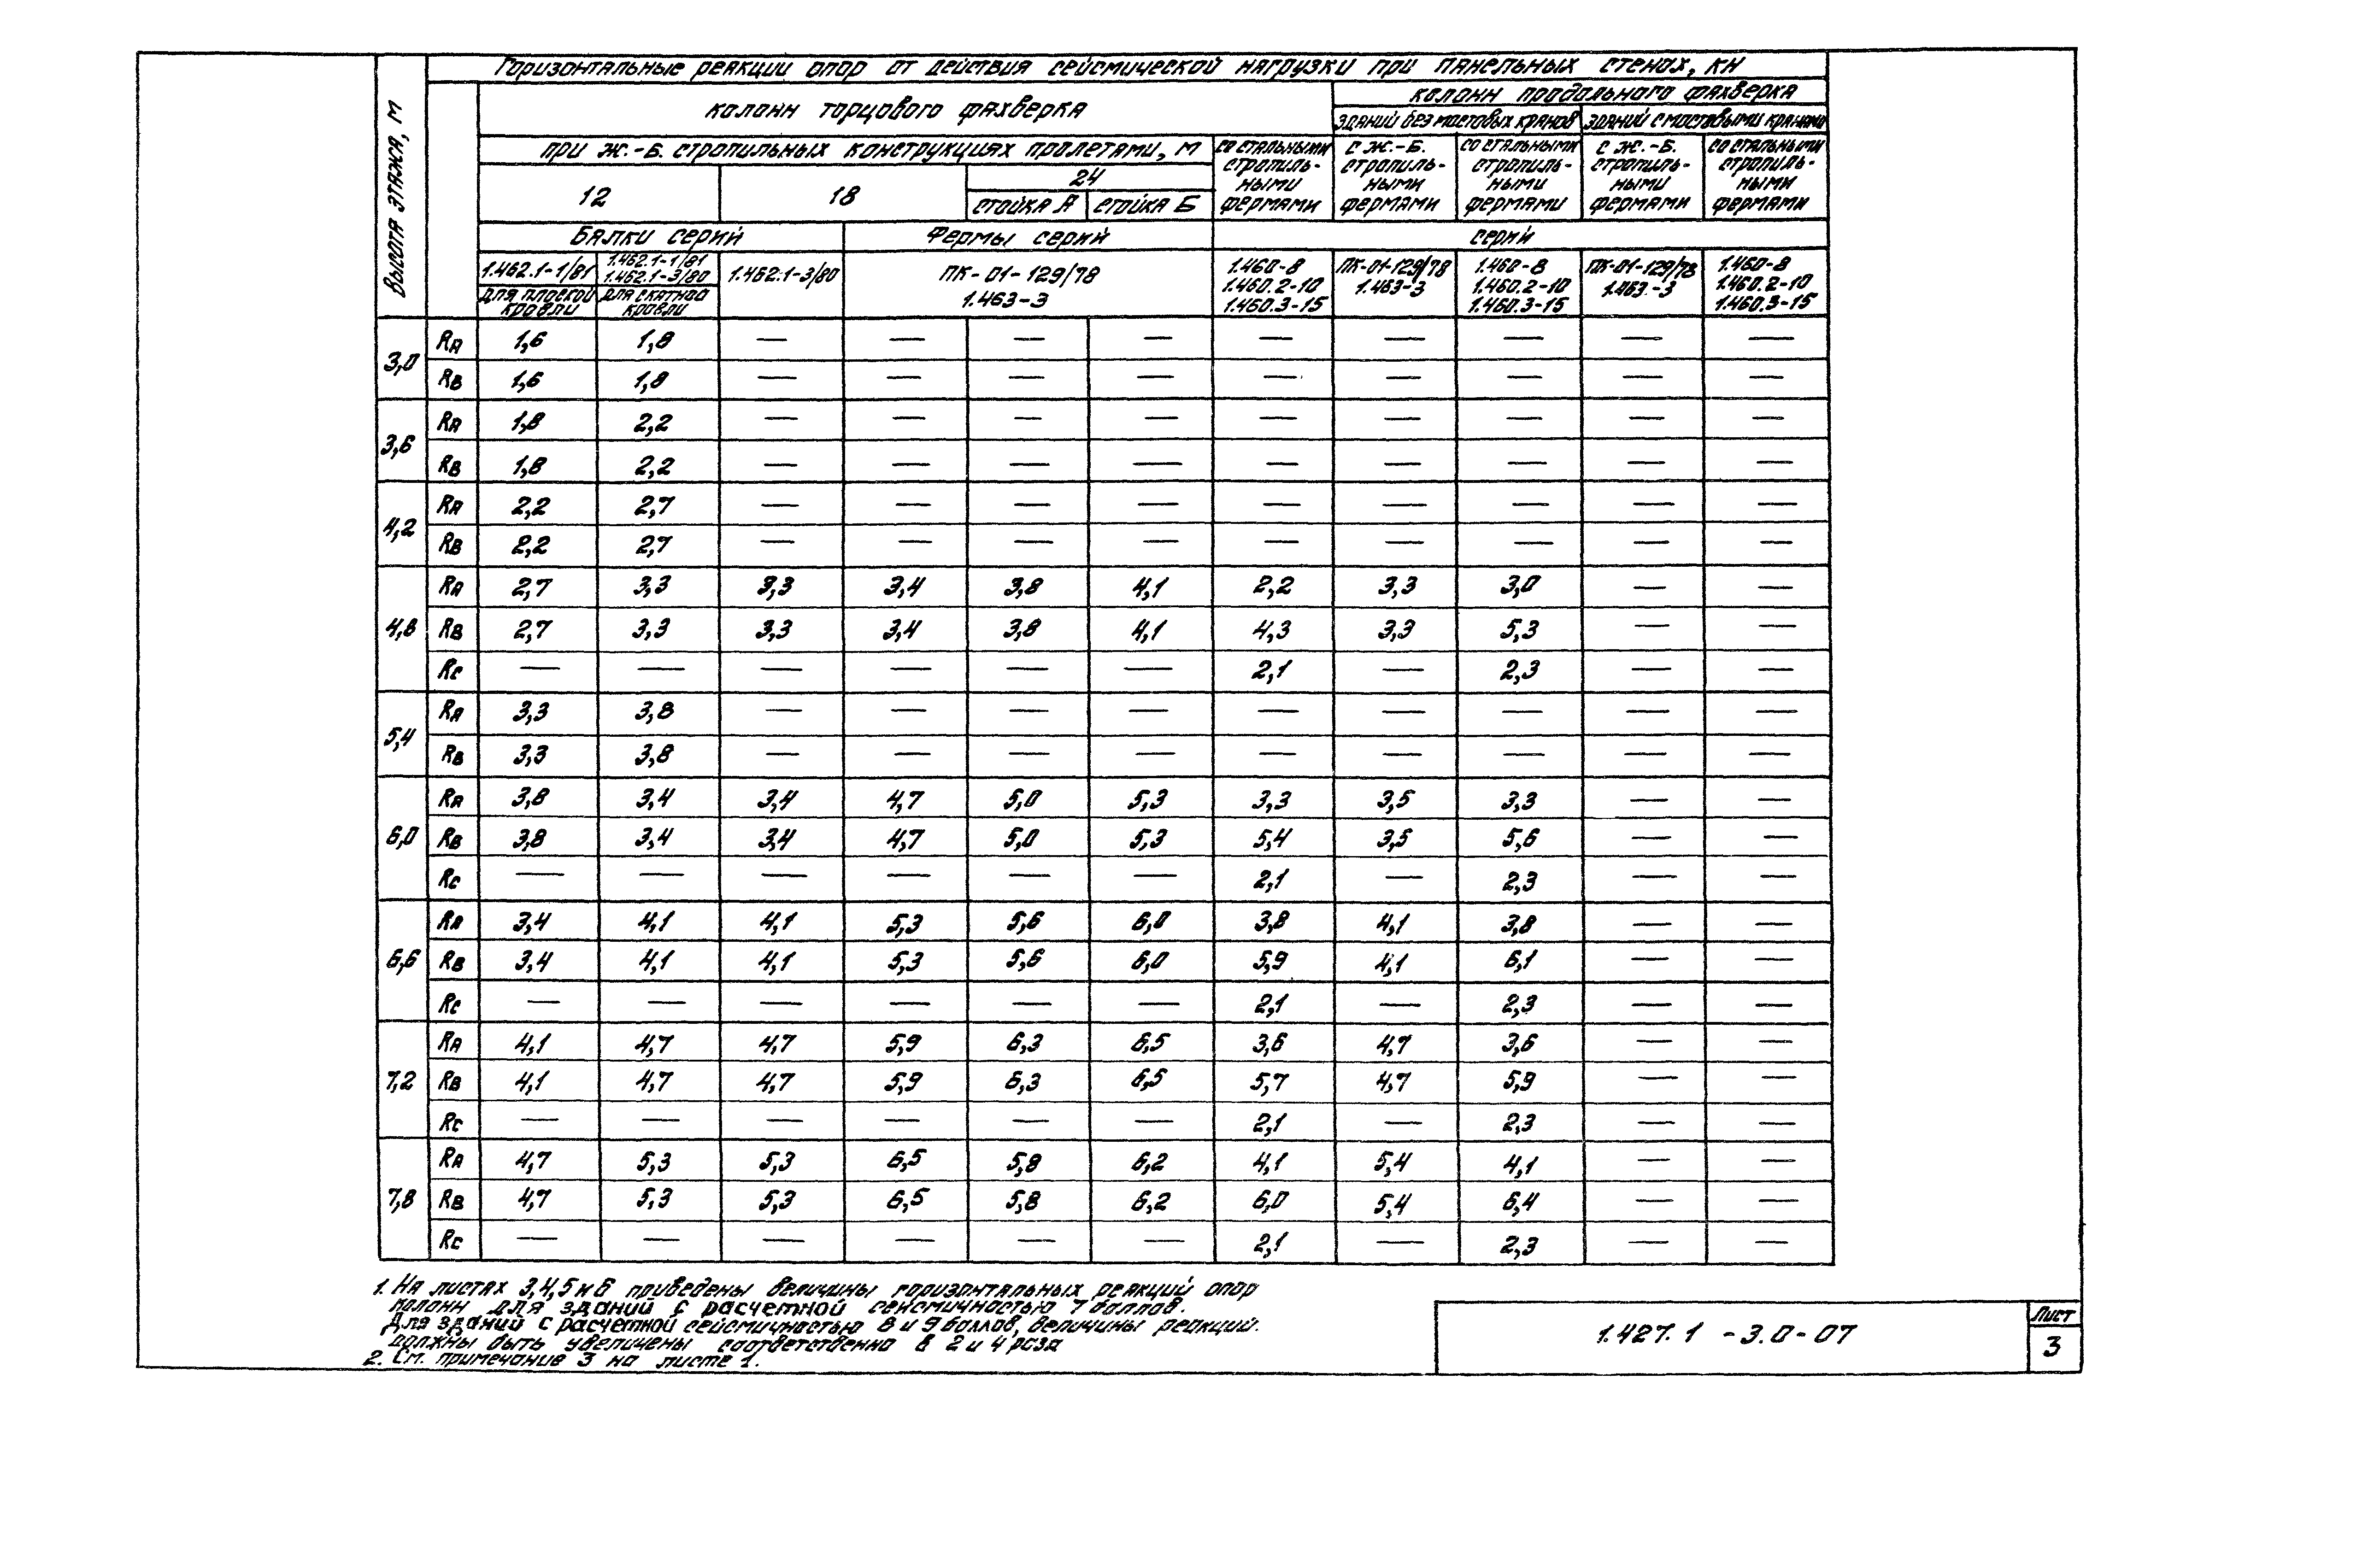 Горизонтальные реакции опор от действия сейсмической нагрузки при панельных стенах, кН
Высота этажа, м
колонн торцового фахверка
колонн продольного фахверка
зданий без мостовых кранов
зданий с мостовыми кранами
при ж.-б. стропильных конструкциях пролетами, м
со стальными стропиль-ными фермами
с ж.-б. стропиль-ными фермами
со стальными стропиль-ными фермами
с ж.-б. стропиль-ными фермами
со стальными стропиль-ными фермами
12
18
24
стойка А
стойка Б
Балки серий
Фермы серий
серий
1.462.1-1/81
1.462.1-1/81
1.462.1-3/80
1.462.1-3/80
для плоской кровли
для скатной кровли
ПК-01-129/78
1.463-3
1.460-8
1.460.2-10
1.460.3-15
ПК-01-129/78
1.463-3
1.460-8
1.460.2-10
1.460.3-15
ПК-01-129/78
1.463-3
1.460-8
1.460.2-10
1.460.3-15
3,0
RA 1,6 1,8 — — — — — — — — —
RB 1,6 1,8 — — — — — — — — —
3,6
RA 1,8 2,2 — — — — — — — — —
RB 1,8 2,2 — — — — — — — — —
4,2
RA 2,2 2,7 — — — — — — — — —
RB 2,2 2,7 — — — — — — — — —
4,8
RA 2,7 3,3 3,3 3,4 3,8 4,1 2,2 3,3 3,0 — —
RB 2,7 3,3 3,3 3,4 3,8 4,1 4,3 3,3 5,3 — —
RC — — — — — — 2,1 — 2,3 — —
5,4
RA 3,3 3,8 — — — — — — — — —
RB 3,3 3,8 — — — — — — — — —
6,0
RA 3,8 3,4 3,4 4,7 5,0 5,3 3,3 3,5 3,3 — —
RB 3,8 3,4 3,4 4,7 5,0 5,3 5,4 3,5 5,6 — —
RC — — — — — — 2,1 — 2,3 — —
6,6
RA 3,4 4,1 4,1 5,3 5,6 6,0 3,8 4,1 3,8 — —
RB 3,4 4,1 4,1 5,3 5,6 6,0 5,9 4,1 6,1 — —
RC — — — — — — 2,1 — 2,3 — —
7,2
RA 4,1 4,7 4,7 5,9 6,3 6,5 3,6 4,7 3,6 — —
RB 4,1 4,7 4,7 5,9 6,3 6,5 5,7 4,7 5,9 — —
RC — — — — — — 2,1 — 2,3 — —
7,8
RA 4,7 5,3 5,3 6,5 5,8 6,2 4,1 5,4 4,1 — —
RB 4,7 5,3 5,3 6,5 5,8 6,2 6,0 5,4 6,4 — —
RC — — — — — — 2,1 — 2,3 — —
1. На листах 3,4,5 и 6 приведены величины горизонтальных реакций опор
колонн для зданий с расчетной сейсмичностью 7 баллов.
Для зданий с расчетной сейсмичностью 8 и 9 баллов, величины реакций.
должны быть увеличены соответственно в 2 и 4 раза
2. См. примечание 3 на листе 1.
1.427.1 -3.0-07
Лист
3